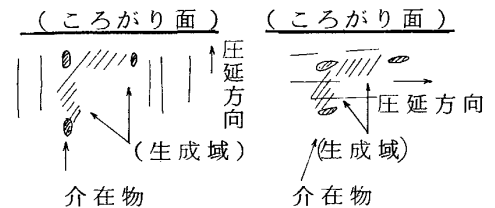 (ころがり面)
圧延方向
(生成域)
介在物
(ころがり面)
圧延方向
(生成域)
介在物